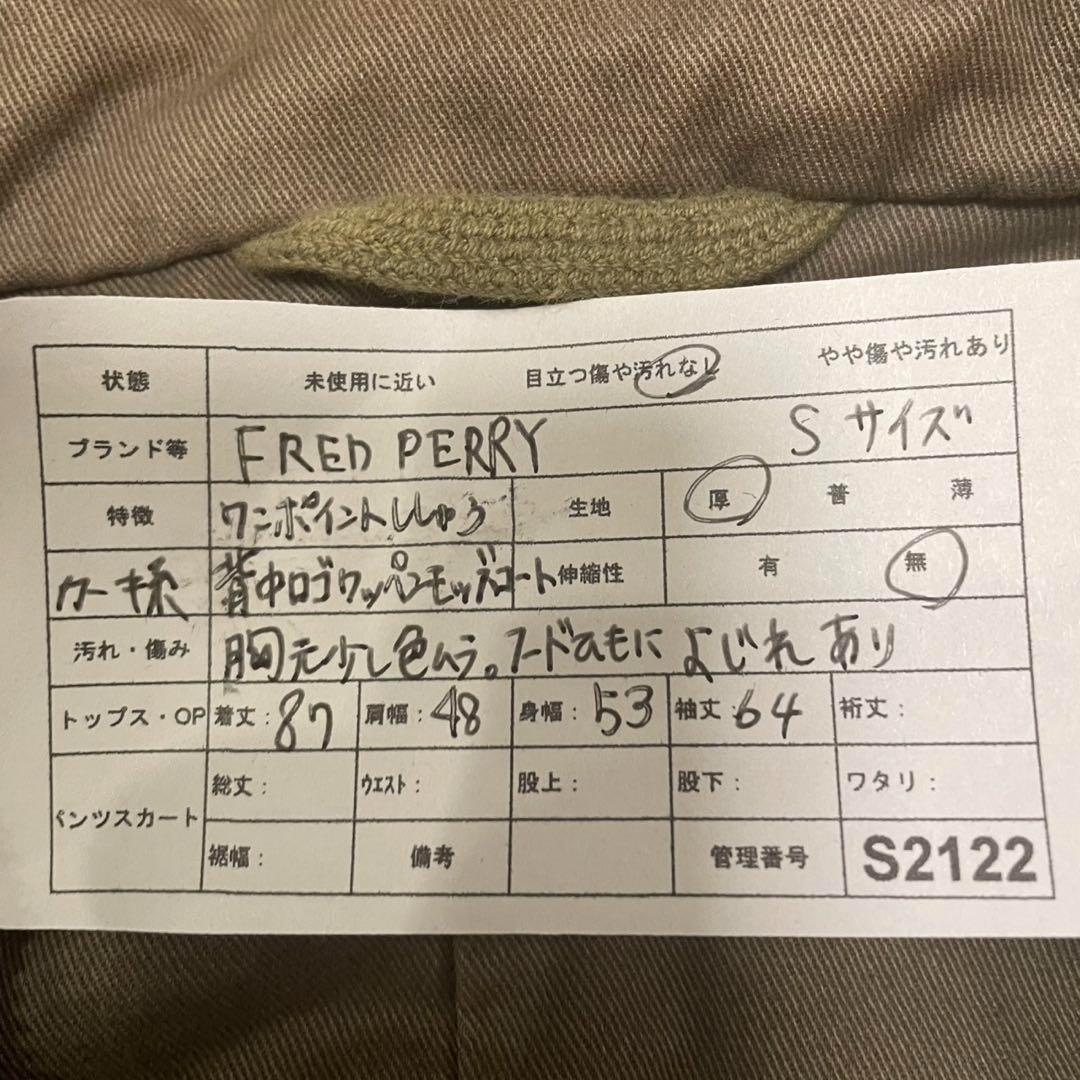 状態 未使用に近い 目立つ傷や汚れなし やや傷や汚れあり
ブランド等 FRED PERRY Sサイズ
特徴 ワンポイントししゅう 生地 厚 普 薄
カーキ系 背中ロゴワッペンモッズコート 伸縮性 有 無
汚れ・傷み 胸元少し色ムラ。フードひもに よじれ あり
トップス・OP 着丈:87 肩幅:48 身幅:53 袖丈:64 裄丈:
ペンツスカート 総丈: ウエスト: 股上: 股下: ワタリ:
裾幅: 備考 管理番号 S2122